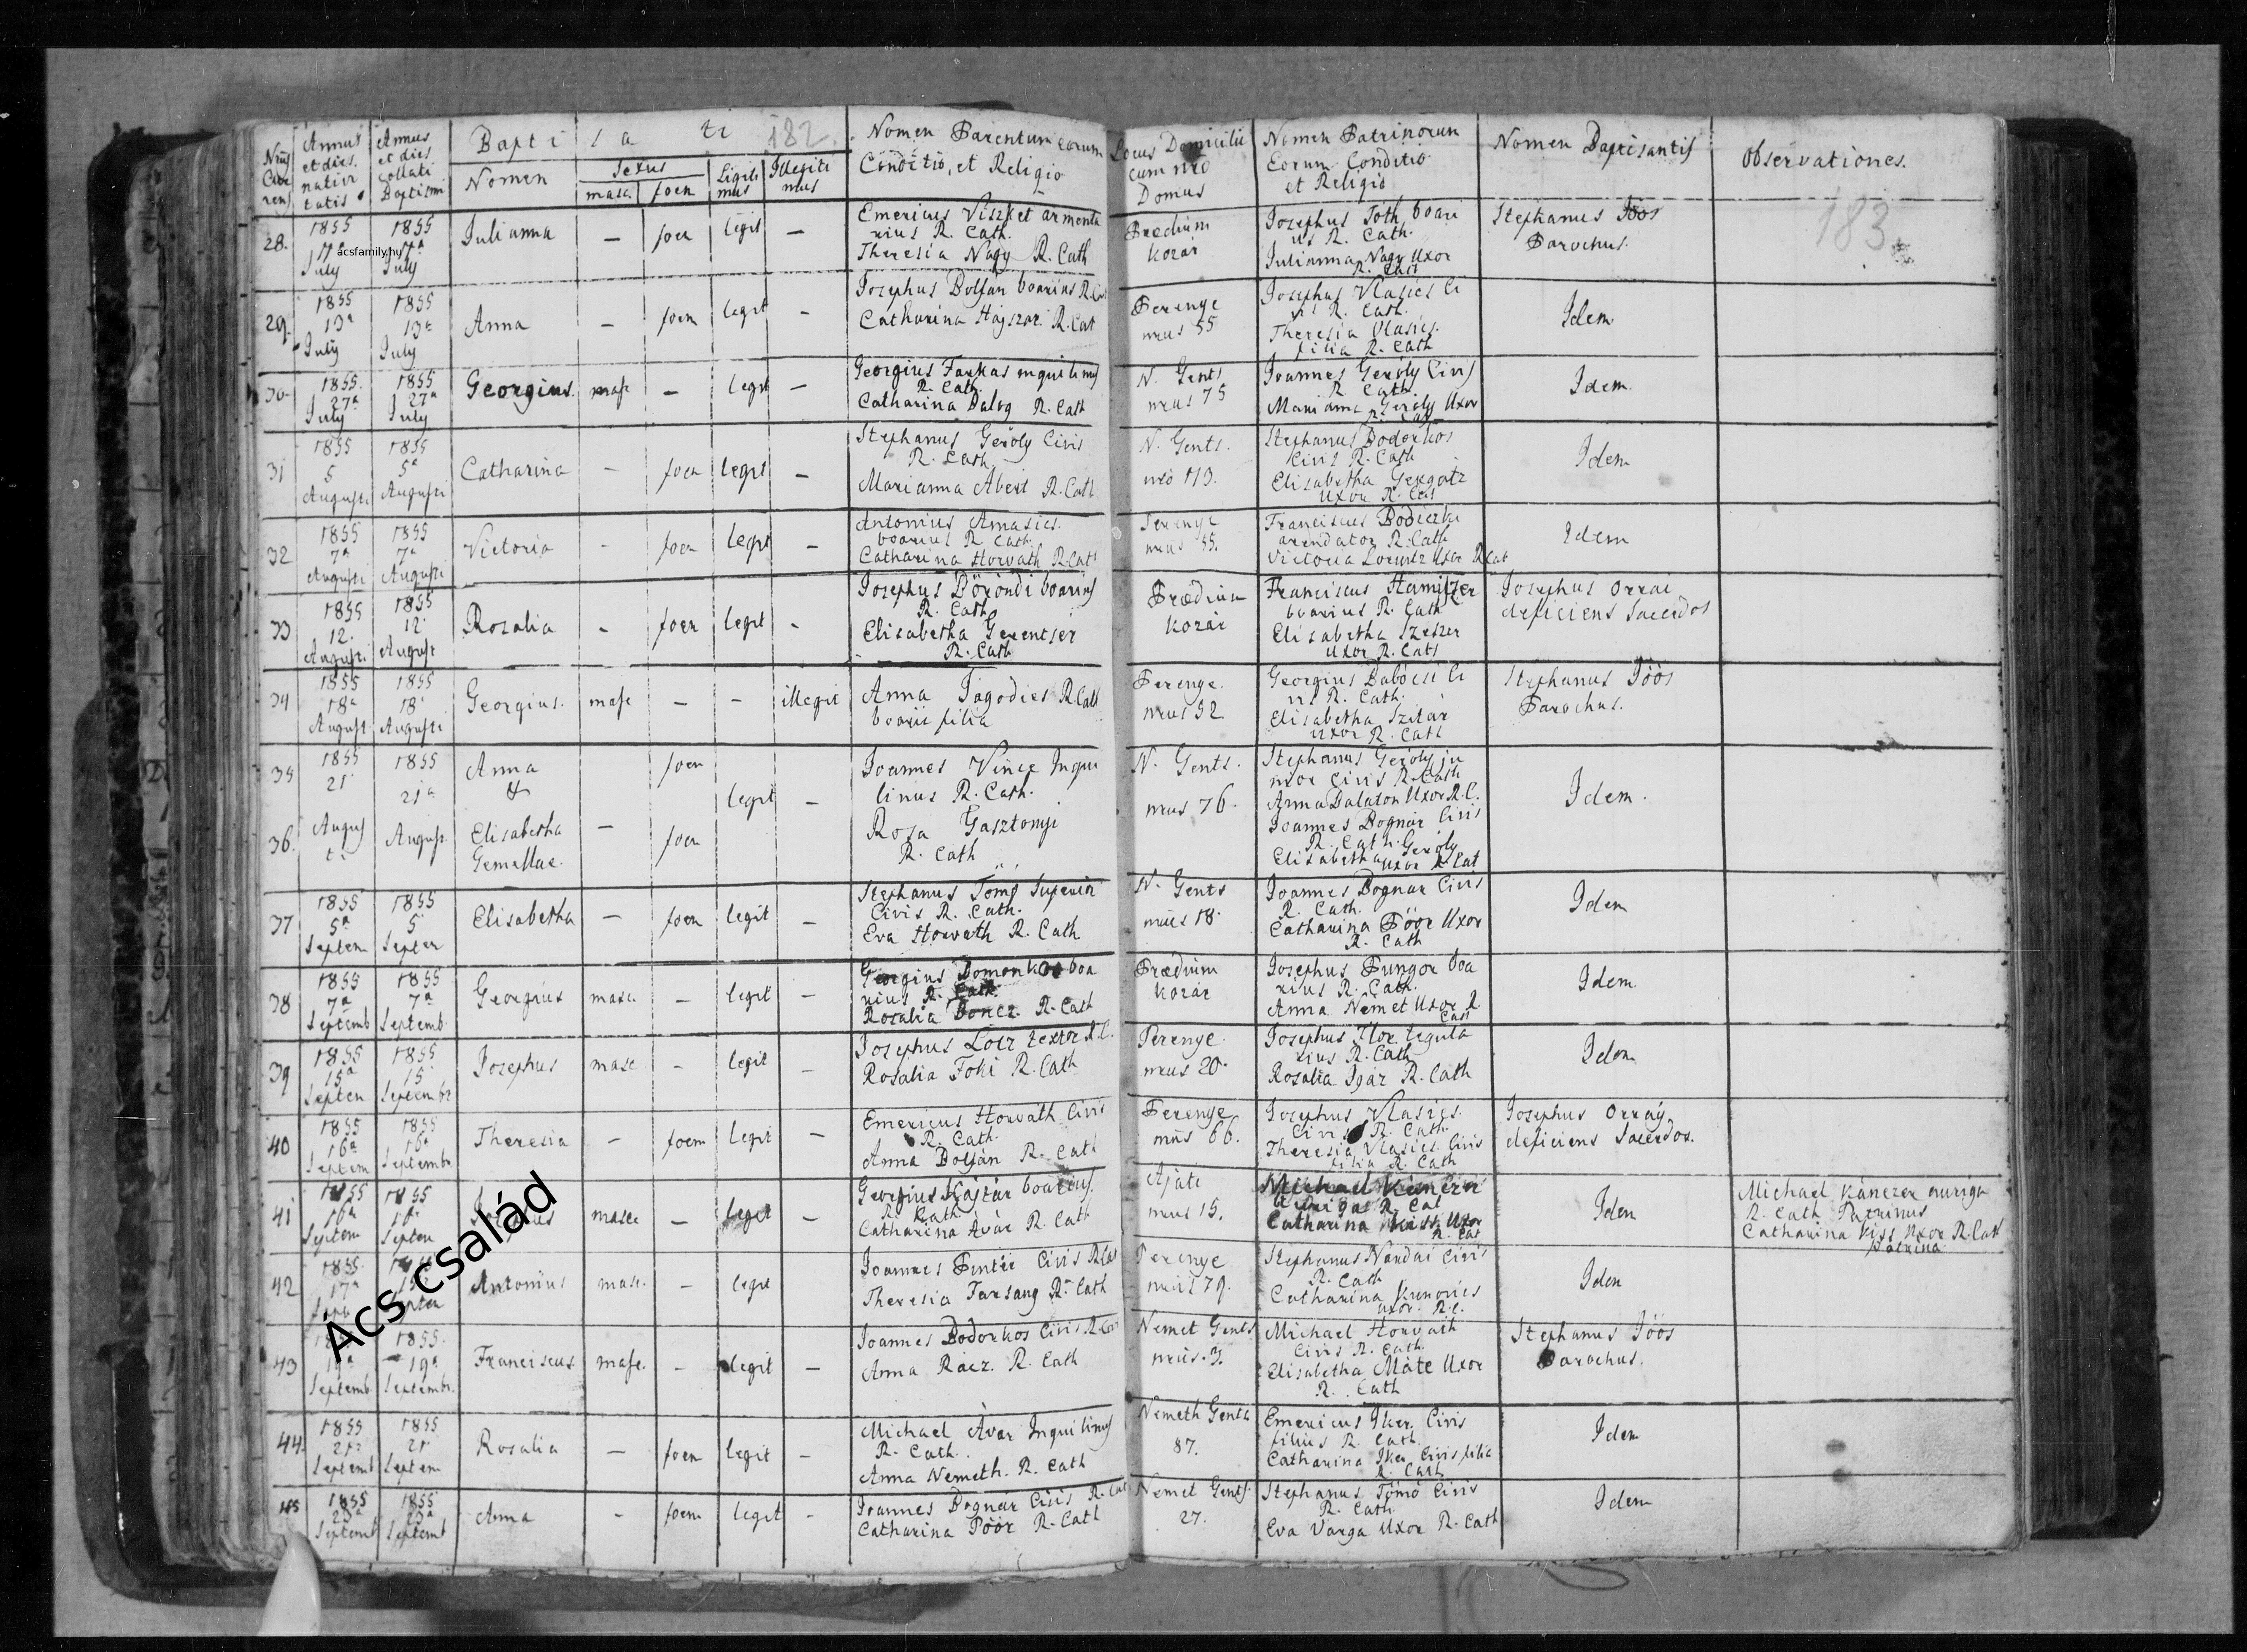 Nrus Cur rens
Annus et dies nativi tatis
Annus et dies collati Baptismi
Bapti s a ti 182
Nomen
Sexus
masc. foem
Legiti mus
Illegiti mus
Nomen Parentum eorum
Conditio, et Religio
Locus Domicilii
cum nro
Domus
Nomen Patrinorum
Eorum Conditio
et Religio
Nomen Baptisantis
Observationes.
183
28. 1855 July 1855 July Julianna — foem legit —
acsfamily.hu
Emericus Viszket armenta
rius R. Cath.
Theresia Nagy R. Cath
Praedium
Kozár
Josephus Tóth boari
us R. Cath.
Julianna Nagy Uxor
R. Cath
Stephanus Jöös
Parochus.
29. 1855 13a July 1855 13a July Anna — foem legit —
Josephus Bolfán boarius R. Cat
Catharina R. Cat
Perenye
nrus 55
Josephus Vlasics Ci
vis R. Cath.
Theresia Vlasics.
filia R. Cath
Idem
30. 1855. 27a July 1855 27a July Georgius masc — legit —
Georgius Farkas inquilinus
R. Cath.
Catharina Balog R. Cath
N. Gents
nrus 75
Joannes Geröly Civis
R. Cath.
Marianna Geröly Uxor
R. Cath
Idem.
31 1855 5 Augusti 1855 5a Augusti Catharina — foem legit —
Stephanus Geröly Civis
R. Cath.
Marianna Abert R. Cath.
N. Gents.
nro 113.
Stephanus Bodorkos
Civis R. Cath
Elisabetha Gergatz
Uxor R. Cat
Idem
32 1855 7a Augusti 1855 7a Augusti Victoria — foem legit —
Antonius Amasics.
boarius R. Cath.
Catharina Horvath R. Cath
Perenye
nrus 55.
Franciscus Bodiczki
arendator R. Cath
Victoria Lorentz Uxor R. Cat
Idem
33 1855 12. August. 1855 12 August Rosalia — foem legit —
Josephus Böröndi boarius
R. Cath
Elisabetha Gerentsér
R. Cath
Praedium
Kozár
Franciscus
boarius R. Cath
Elisabetha Szeszer
Uxor R. Cath
Josephus Orrai
deficiens Sacerdos
34 1855 18a August 1855 18 Augusti Georgius. masc — — illegit
Anna Jagodics R. Cath
boarii filia
Perenye.
nrus 52
Georgius Babócsi Ci
vis R. Cath.
Elisabetha Szitár
Uxor R. Cath
Stephanus Jöös
Parochus.
35 1855 21 1855 21a Anna foem
&
legit —
36. Augus ti August. Elisabetha — foem
Gemellae.
Joannes Vincze Inqui
linus R. Cath.
Rosa Gasztonyi
R. Cath
N. Gents.
nrus 76.
Stephanus Geröly ju
nior Civis R. Cath
Anna Balaton Uxor R. C.
Joannes Bognár Civis
R. Cath.
Elisabetha Geröly
Uxor R. Cat
Idem.
37 1855 5a Septem 1855 5 Septem Elisabetha — foem legit —
Stephanus Tomo Superior
Civis R. Cath.
Eva Horvath R. Cath
N. Gents
nrus 18.
Joannes Bognar Civis
R. Cath.
Catharina Pöör Uxor
R. Cath
Idem
38 1855 7a Septemb 1855 7a Septemb. Georgius masc. — legit —
Georgius Domonkos boa
rius R. Cath.
Rosalia Boncz. R. Cath
Praedium
Kozár
Josephus Pungor boa
rius R. Cath.
Anna Német Uxor R.
Cath
Idem.
39 1855 15a Septem 1855 15 Septembr Josephus masc — legit —
Josephus textor R. C.
Rosalia Foki R. Cath
Perenye
nrus 20.
Josephus Flor tegula
rius R. Cath
Rosalia Igár R. Cath
Idem
40 1855 16a Septem 1855 16a Septembr Theresia — foem legit —
Emericus Horváth Civis
R. Cath.
Anna Bolfán R. Cath
Perenye
nrus 66.
Josephus Vlasics.
Civis R. Cath.
Theresia Vlasics. Civis
filia R. Cath
Josephus Orraÿ
deficiens Sacerdos.
41 1855 16a Septem 1855 16 Septem masc — legit —
Georgius Hajtár boarius.
R. Cath
Catharina Avár R. Cath
Ajati
nrus 15.
Michael Kánczer
auriga R. Cat
Catharina Kiss Uxor
R. Cat
Idem
Michael Kánczer auriga
R. Cath Patrinus
Catharina Kiss Uxor R. Cath
Patrina.
42 1855. 17a Antonius masc. — legit
Joannes Pintér Civis R. Cat
Theresia Farsang R. Cath
Perenye
nrus 79.
Stephanus Nardai Civis
R. Cath
Catharina Kunovics
Uxor. R. C.
Idem
43 19a Septemb. 1855. 19a Septembr. Franciscus masc. — legit —
Joannes Bodorkos Civis R. Cat
Anna Rácz. R. Cath
Nemet Gents
nrus. 3.
Michael Horvath
Civis R. Cath.
Elisabetha Máté Uxor
R. Cath
Stephanus Jöös
Parochus.
44. 1855 21a Septemb 1855 21 Septem Rosalia — foem legit —
Michael Avar Inquilinus
R. Cath.
Anna Németh. R. Cath
Nemeth Gents
87.
Emericus Iker Civis
filius R. Cath.
Catharina Iker Civis filia
R. Cath
Idem
45 1855 23a Septemb 1855 23a Septemb Anna — foem legit —
Joannes Bognár Civis R. Cat
Catharina Pöör R. Cath
Nemet Gents.
27.
Stephanus Tömö Civis
R. Cath.
Eva Varga Uxor R. Cath
Idem
Ács család